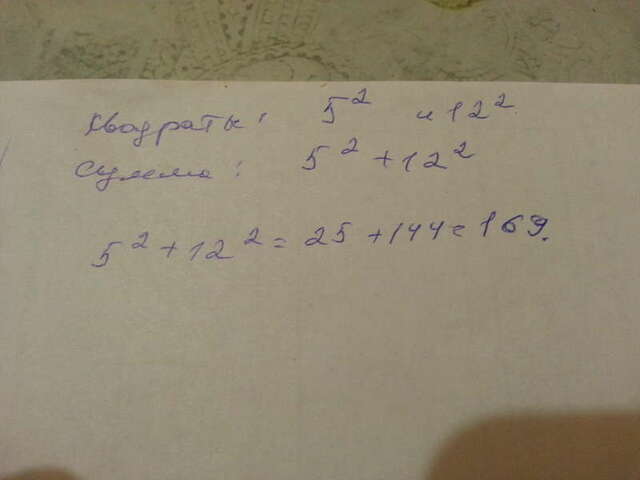 Квадраты: 5² и 12²
Сумма: 5² + 12²
5² + 12² = 25 + 144 = 169.